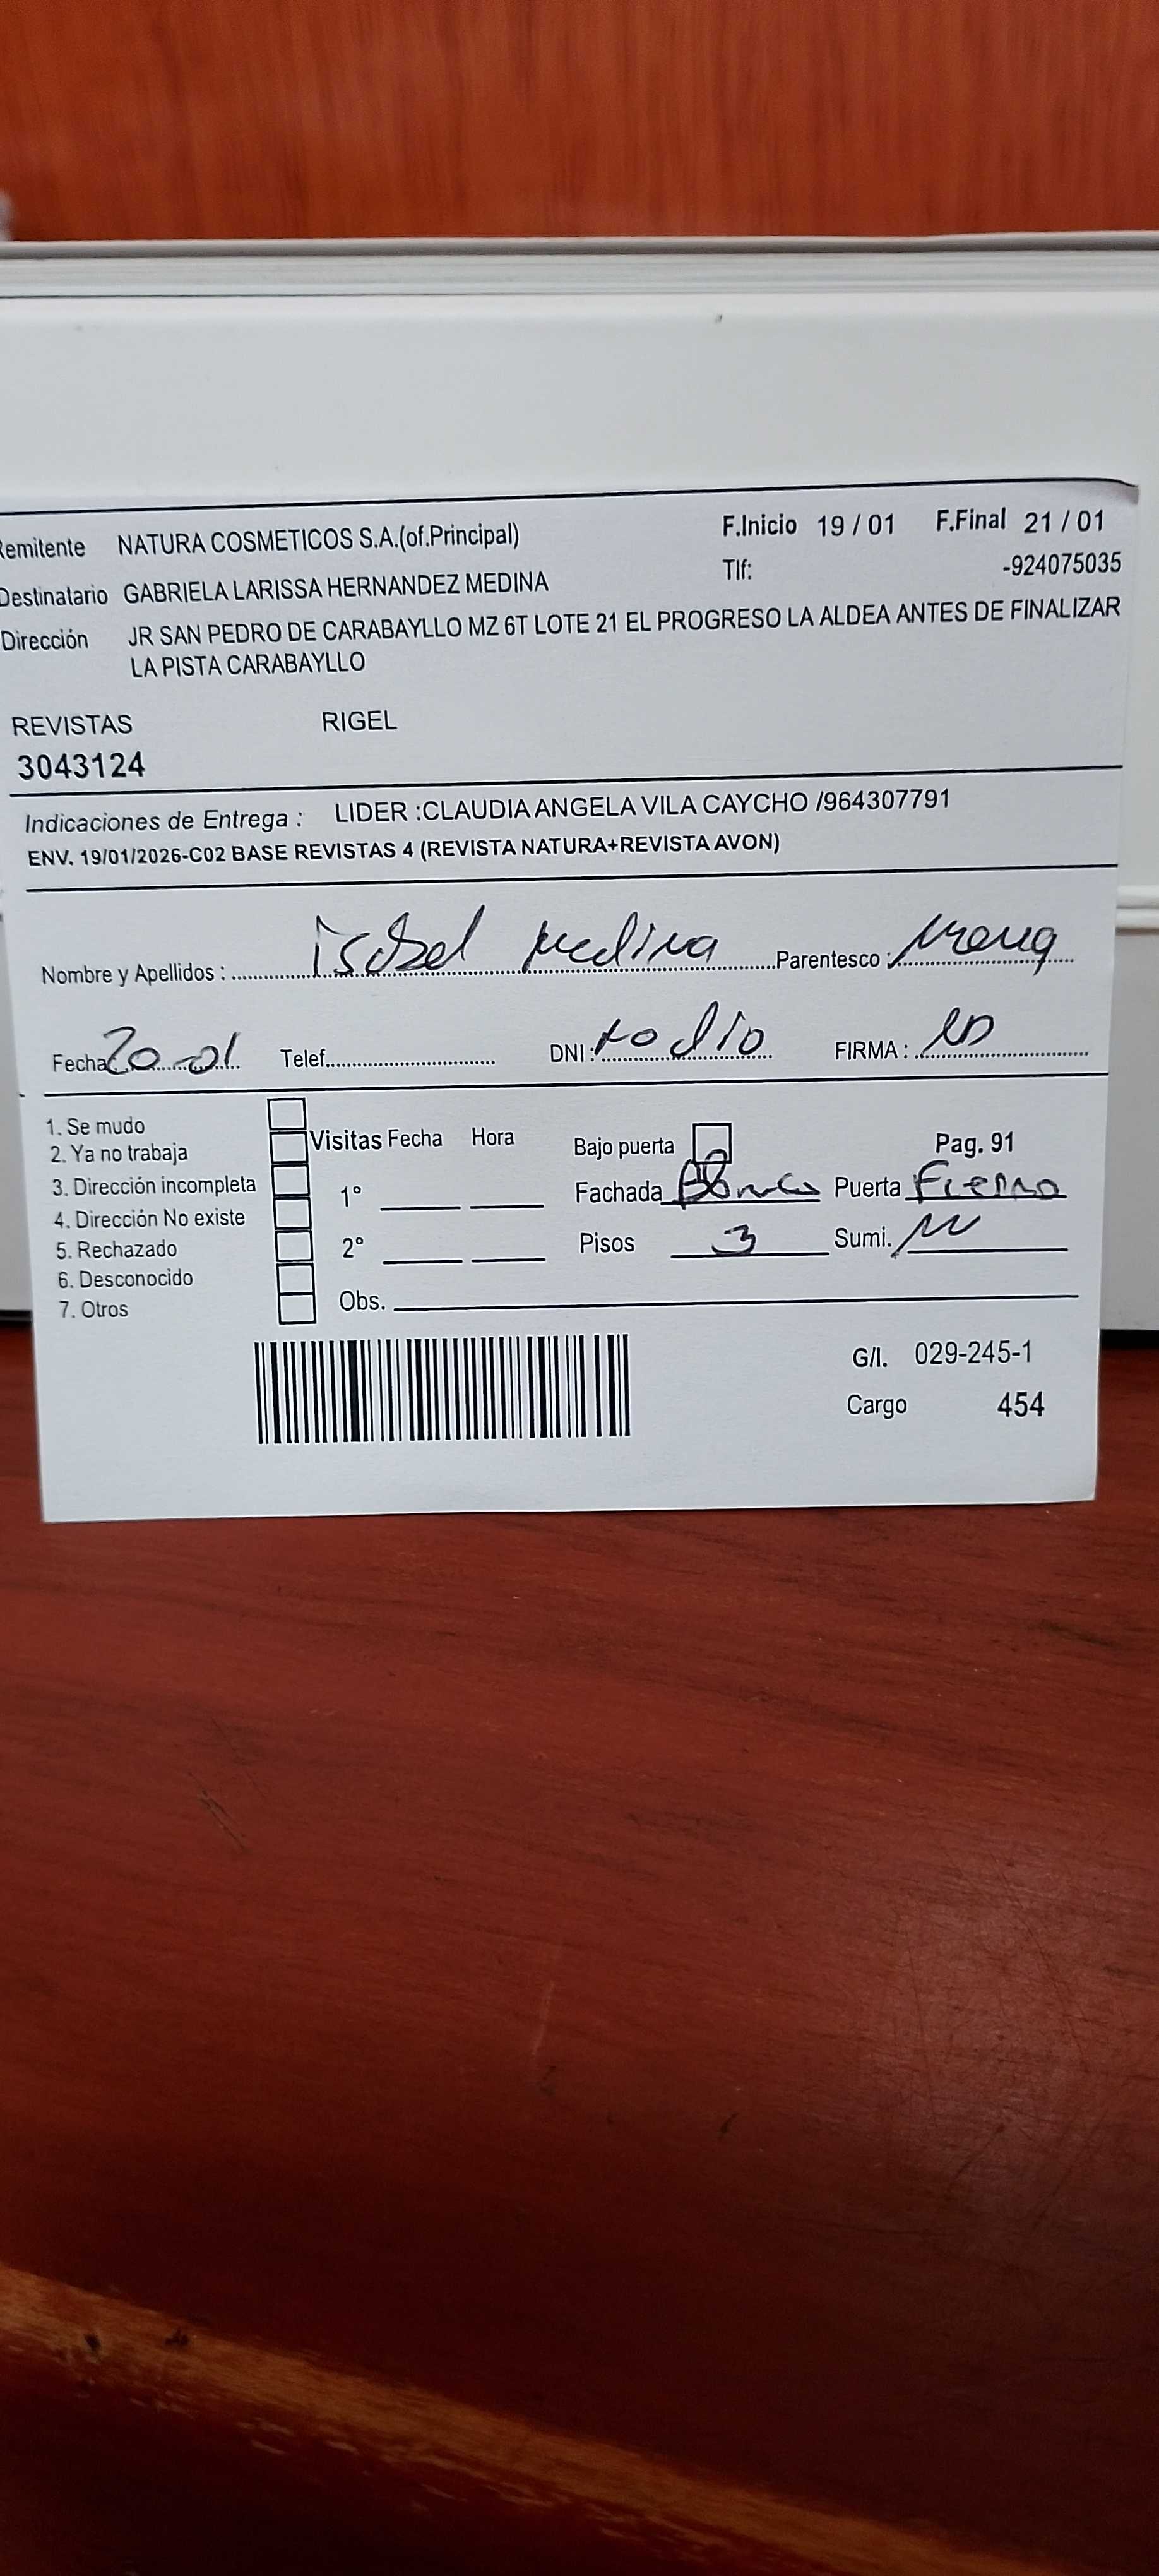 Remitente NATURA COSMETICOS S.A.(of.Principal) F.Inicio 19 / 01 F.Final 21 / 01
Destinatario GABRIELA LARISSA HERNANDEZ MEDINA Tlf: -924075035
Dirección JR SAN PEDRO DE CARABAYLLO MZ 6T LOTE 21 EL PROGRESO LA ALDEA ANTES DE FINALIZAR
LA PISTA CARABAYLLO
REVISTAS RIGEL
3043124
Indicaciones de Entrega : LIDER :CLAUDIA ANGELA VILA CAYCHO /964307791
ENV. 19/01/2026-C02 BASE REVISTAS 4 (REVISTA NATURA+REVISTA AVON)
Nombre y Apellidos : isabel Medina Parentesco :
Fecha 20-01 Telef. DNI: no dio FIRMA :
1. Se mudo
2. Ya no trabaja Visitas Fecha Hora Bajo puerta Pag. 91
3. Dirección incompleta 1° Fachada Blanco Puerta Fierro
4. Dirección No existe
5. Rechazado 2° Pisos 3 Sumi.
6. Desconocido
7. Otros Obs.
G/I. 029-245-1
Cargo 454